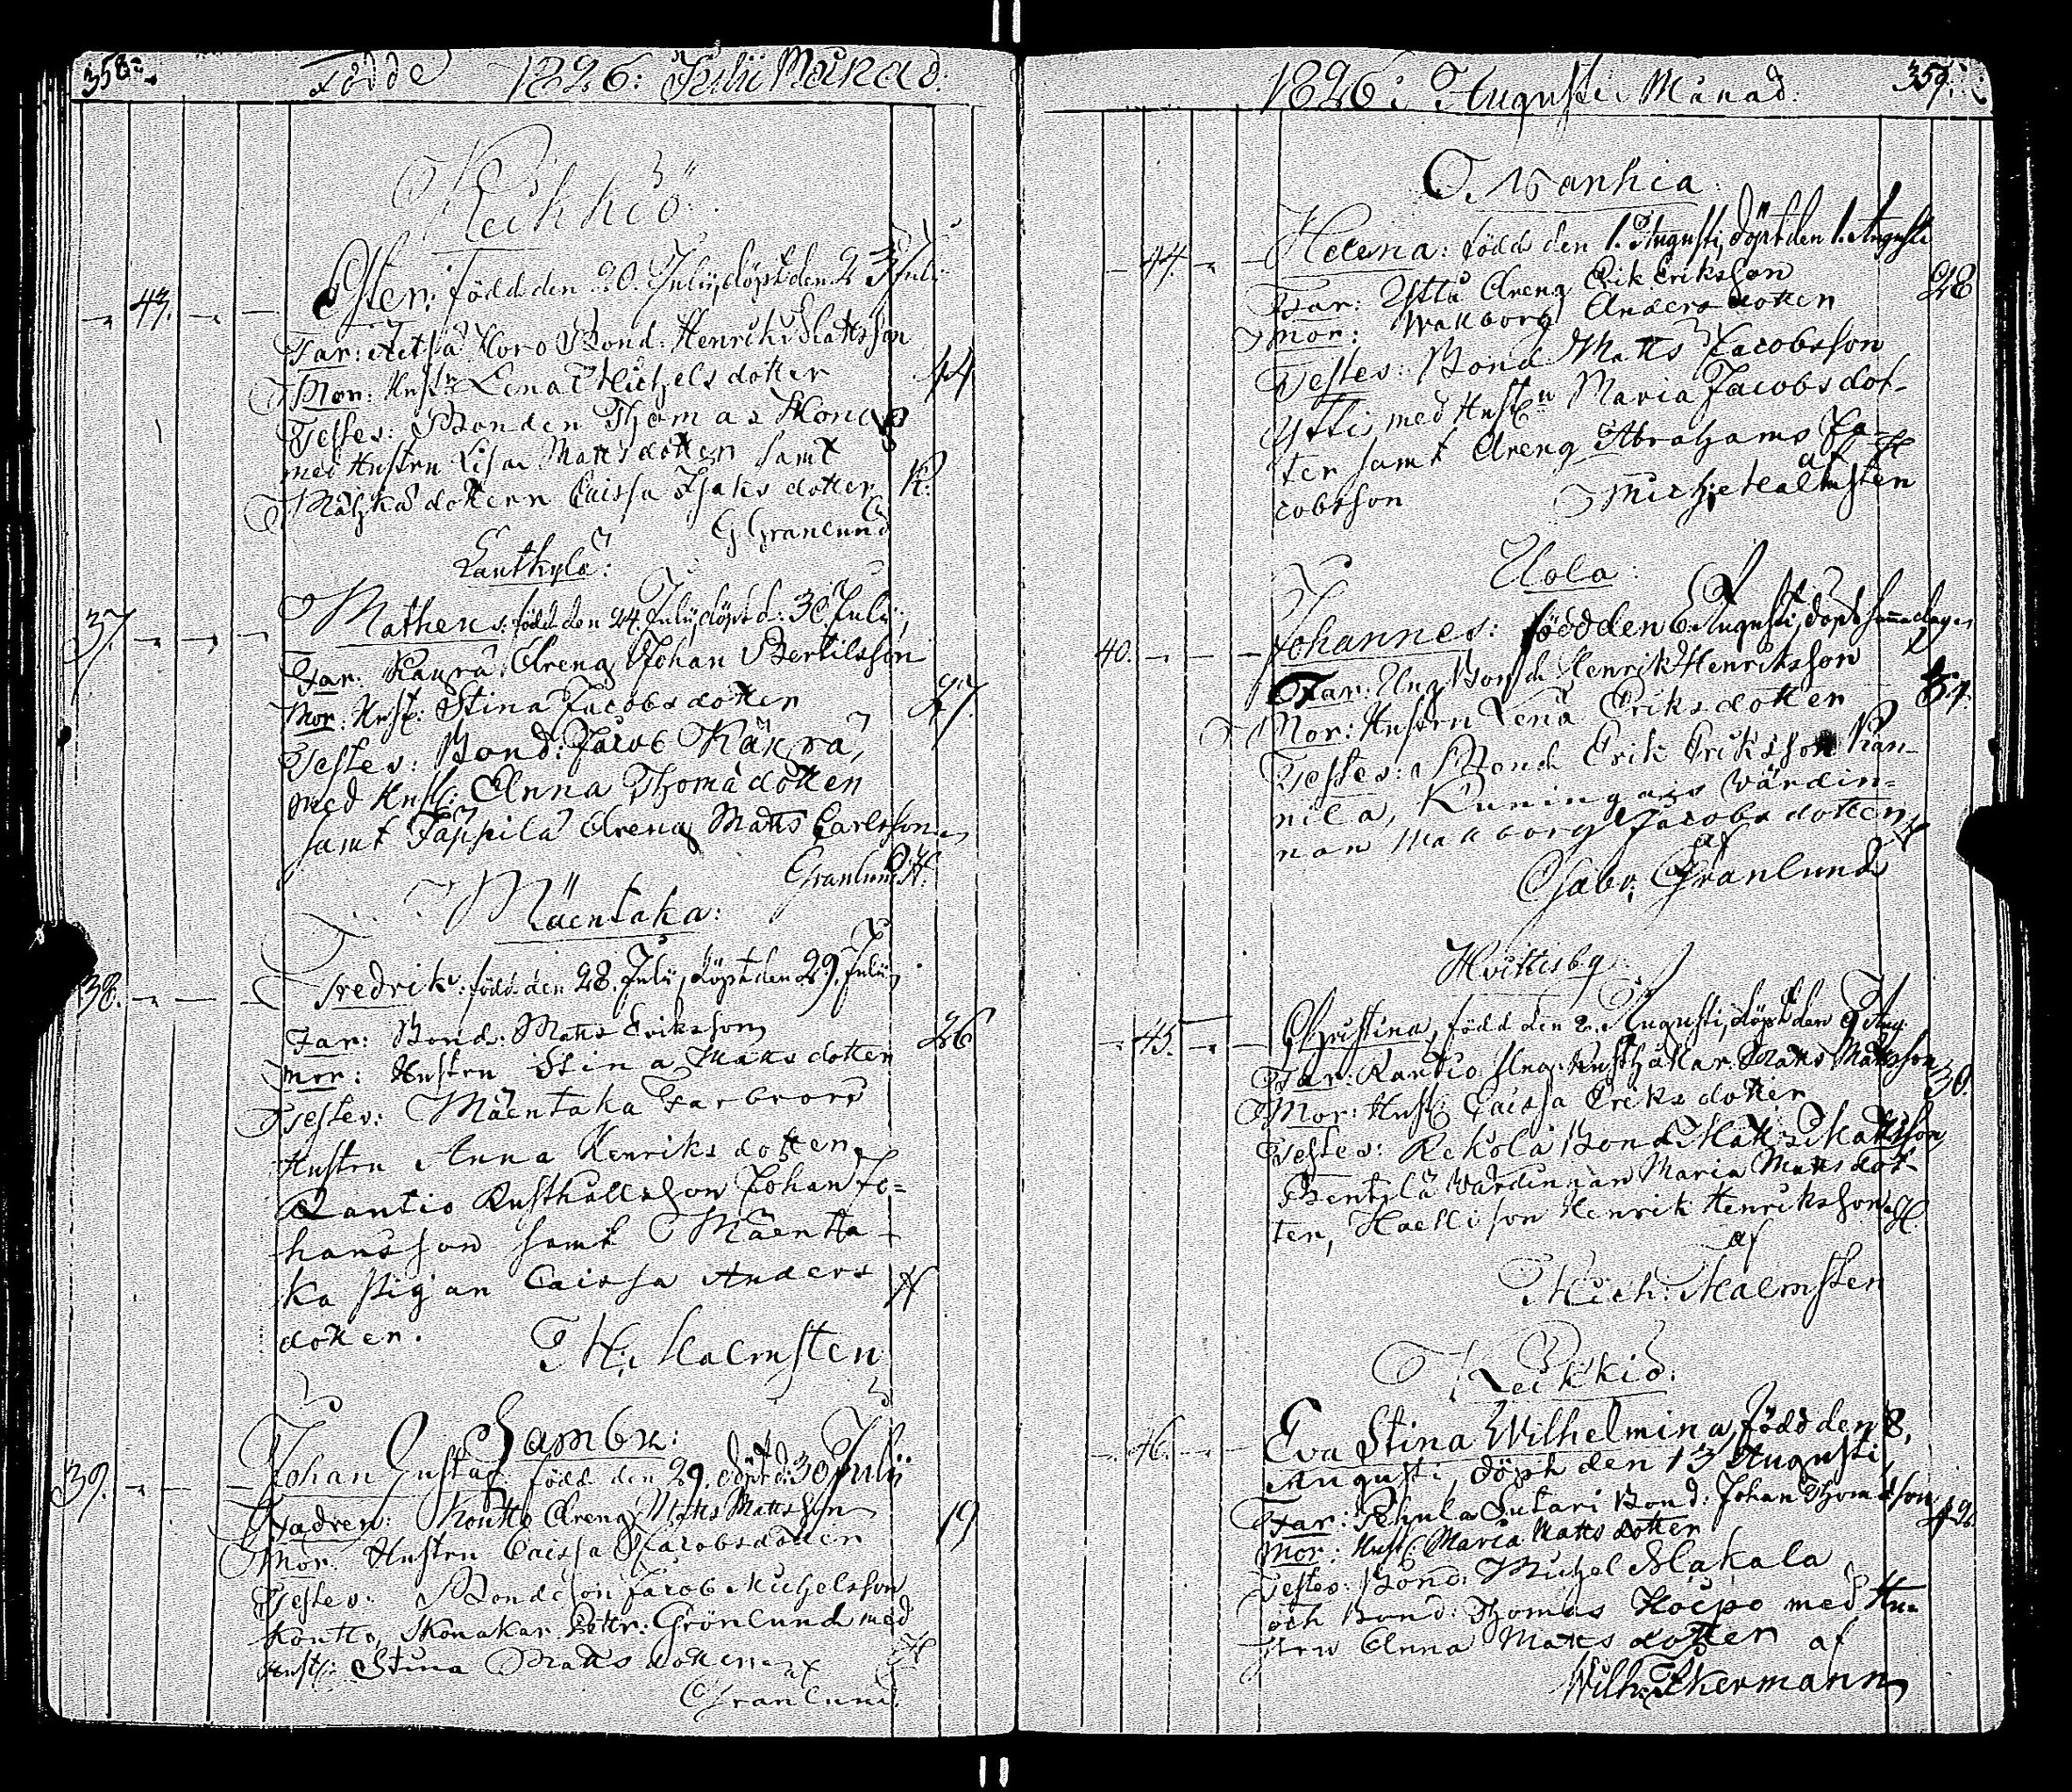 358.
Födde 1826: Julii Månad.
Keikkiö
43. Ester: född den 20. Julii, döpt den 23 Julii
Far: Bond: Henrik Mattsson
Mor: Hustr. Lena Michelsdotter 44
Testes: Bonden Thomas
med Hustru Lisa Mattsdotter samt
dottern Caissa Isaksdotter K.
G Granlund
Lautkylä:
37. Matheus: född den 24. Julii, döpt d: 30 Julii,
Far: Dreng Johan Bertilsson
Mor: Hust: Stina Jacobsdotter 27.
Testes: Bond: Jacob Käkrä,
med Hust: Anna Thomädotter
samt Täppilä Dreng Matts Carlsson
Granlund H.
Mäentaka:
38. Fredrik: född den 28. Julii, döpt den 29. Julii,
Far: Bond: Matts Eriksson
Mor: Hustru Stina Mattsdotter 26
Testes: Mäentaka Farbrors
Hustru Anna Henriksdotter,
Rantio Rusthållsson Johan Jo=
hansson samt Mäenta-
ka Pigan Caissa Anders H
dotter. M: Malmsten
Sambu:
39. Johan Gustaf född den 29. döpt d: 30 Julii
Fadren: Kontto Dreng Matts Mattsson 19
Mor: Hustru Caissa Jacobsdotter
Testes: Bondeson Jacob Michelsson
Kontto, Skomakar Pettr: Grönlund med
Hust: Stina Mattsdotter af H
Granlund.
1826: Augusti Månad: 359.
O. Wanhia
44. Helena: född den 1. Augusti, döpt den 1. Augusti
Far: Yttli Dreng Erik Eriksson 28
Mor: Wallborg Andersdotter
Testes: Bond Matts Jacobsson
Yttli med Hustru Maria Jacobsdot-
ter samt Dreng Abrahams Ja-
cobsson af H
Mich: Malmsten
Uola:
40. Johannes: född den 6. Augusti, döpt samma dag,
Far: Ung Bond Henrik Henriksson
Mor: Hustru Lena Eriksdotter
Testes: Bond Erik Eriksson Kan-
nila, Kuningais Värdin=
nan Wallborg Jacobsdotter,
af H
Gabr: Granlund
Hvittisby
45. Christina, född den 2. Augusti, döpt den 9 Aug.
Far: Rantio Ung: Rusthållar Matts Mattsson 30.
Mor: Hust: Caissa Eriksdotter
Testes: Rekola Bond Matts Mattsson,
Bentilä Värdinnan Maria Mattsdot-
ter, Son Henrik Henriksson H
af
Mich: Malmsten
Keikkiö:
46. Eva Stina Wilhelmina, född den 8,
Augusti, döpt den 13 Augusti,
Far: Sutari Bond: Johan Thomasson
Mor: Hust: Maria Mattsdotter
Testes: Bond: Michel Makala
och Bond: Thomas Hoipo med Hu=
stru Anna Mattsdotter af
Wilh: Åkermann